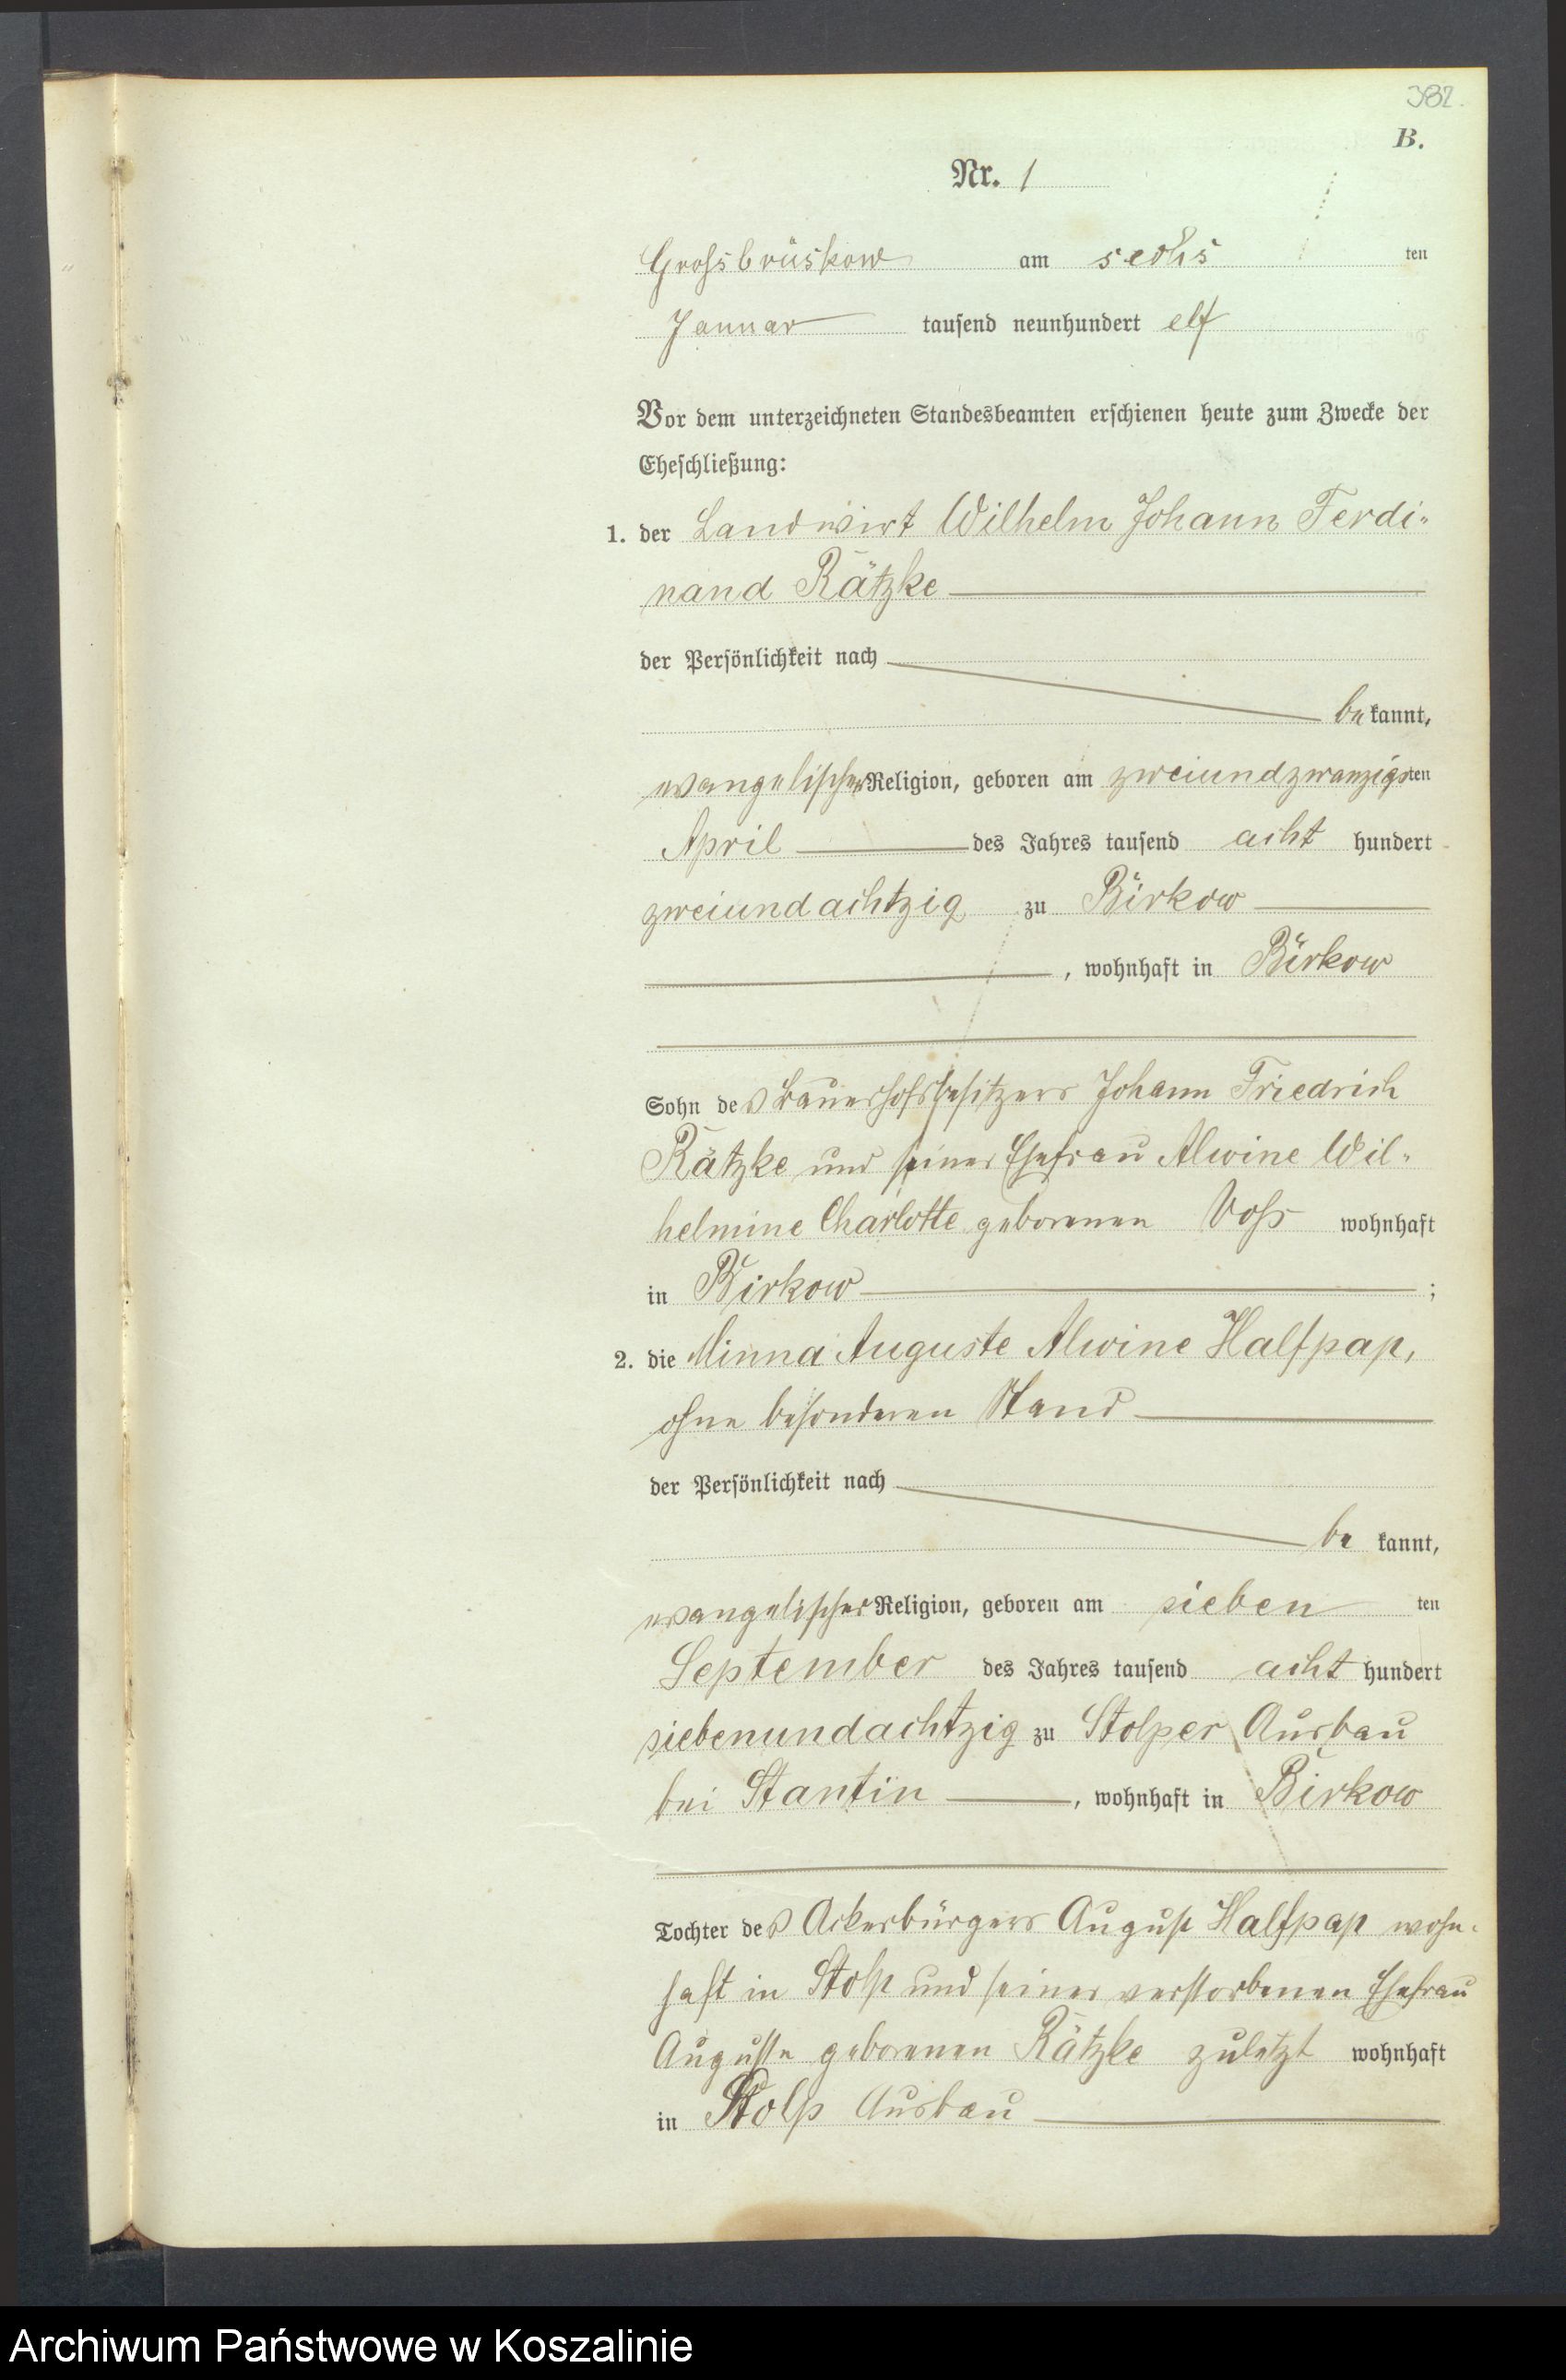 382.
B.
Nr. 1
Grossbrüskow am sechs ten
Januar tausend neunhundert elf
Vor dem unterzeichneten Standesbeamten erschienen heute zum Zwecke der
Eheschließung:
1. der Landwirt Wilhelm Johann Ferdi-
nand Rätzke
der Persönlichkeit nach
be kannt,
evangelischer Religion, geboren am zweiundzwanzigsten
April des Jahres tausend acht hundert
zweiundachtzig zu Birkow
, wohnhaft in Birkow
Sohn des Bauerhofsbesitzers Johann Friedrich
Rätzke und seiner Ehefrau Alwine Wil-
helmine Charlotte geborenen Voß wohnhaft
in Birkow ;
2. die Minna Auguste Alwine Halfpap,
ohne besonderen Stand
der Persönlichkeit nach
be kannt,
evangelischer Religion, geboren am sieben ten
September des Jahres tausend acht hundert
siebenundachtzig zu Stolper Ausbau
bei Stantin , wohnhaft in Birkow
Tochter des Ackerbürgers August Halfpap wohn-
haft in Stolp und seiner verstorbenen Ehefrau
Auguste geborenen Rätzke zuletzt wohnhaft
in Stolp Ausbau
Archiwum Państwowe w Koszalinie